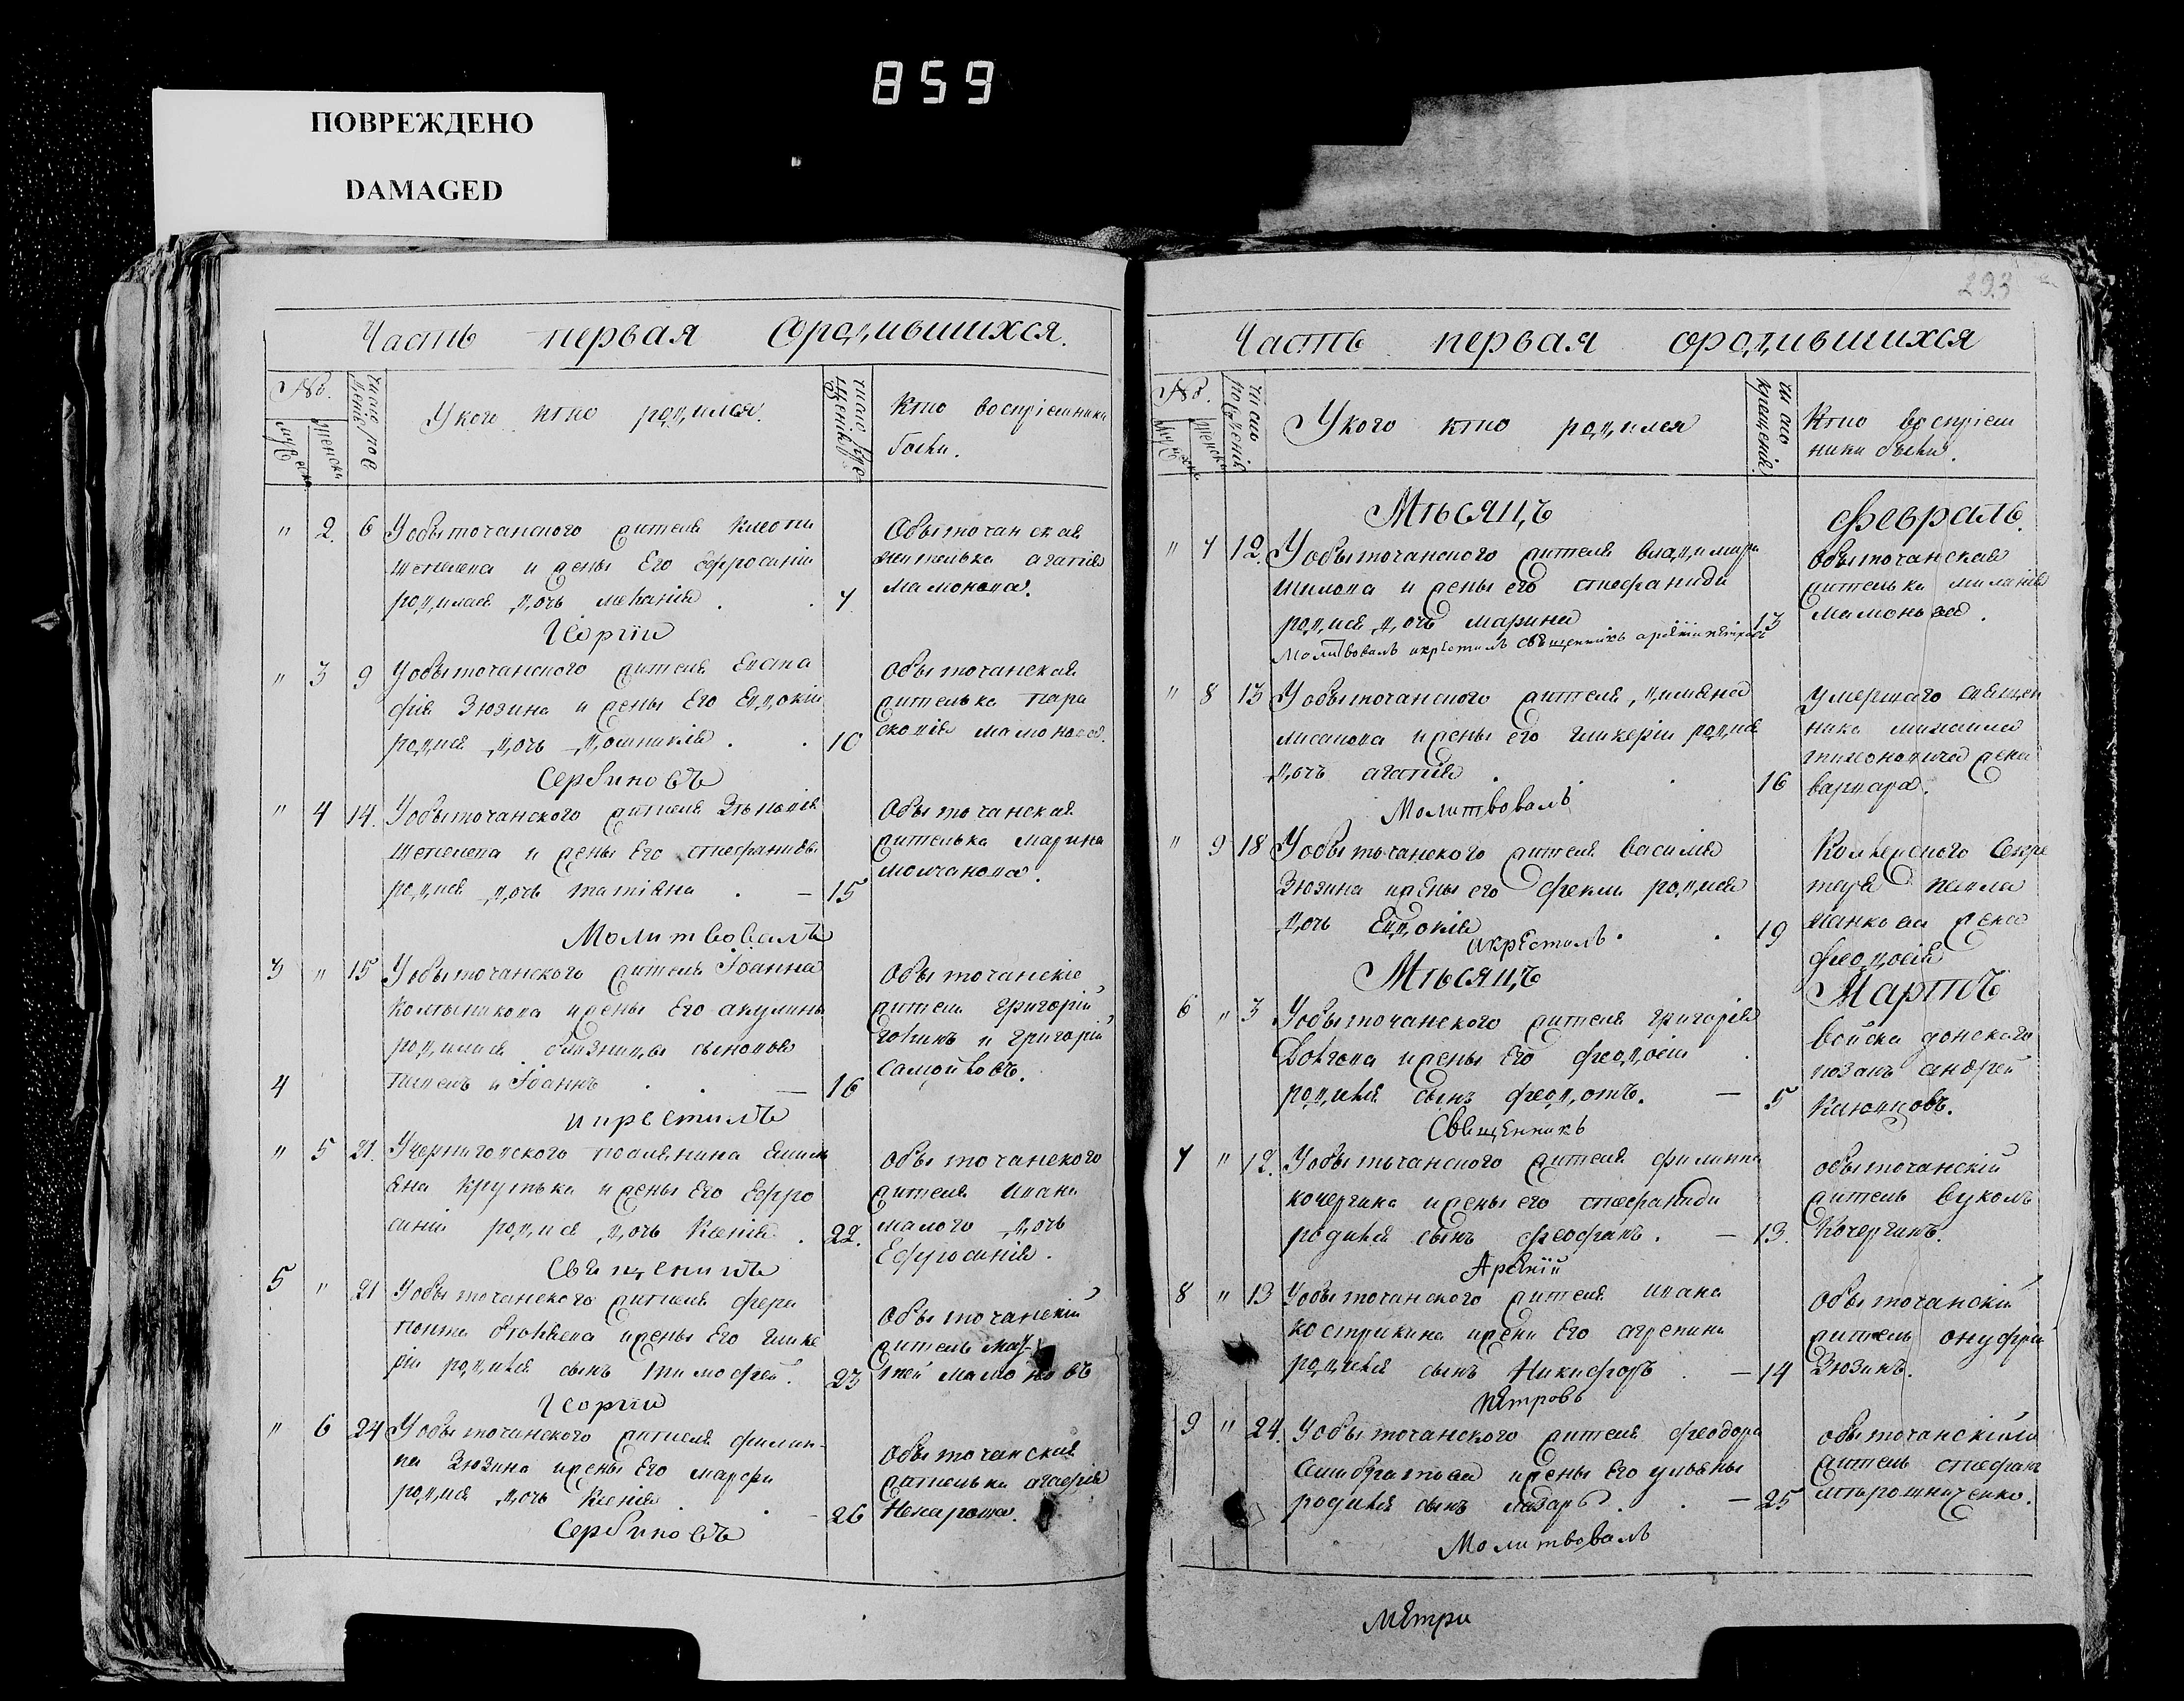 859
ПОВРЕЖДЕНО
DAMAGED
293
Часть первая ородившихся.
№
мужеск
женски
число рож
денія
Укого кто родился.
число кре
щенія
Кто воспріемники
были.
" 2. 6 Уобыточанского жителя
и жены Его Ефросиніи
родилася дочь меланія . . 7
Обыточанская
жителька агапія
мамонова.
Георгіи
" 3 9 Уобыточанского жителя Евста
фія Зюзина и жены Его Евдокіи
родися дочь домникія . . 10
Обыточанская
жителька пара
скопія мамонова.
Сербиновъ
" 4 14. Уобыточанского жителя Зѣновія
шепелева и жены Его стефаниды
родися дочь татіяна . — 15
Обыточанская
жителька марина
молчанова.
Молитвовалъ
3 " 15 Уобыточанского жителя Іоанна
колтыникова ижены Его акулины
родилися близнецы сыновья
4 павелъ и Іоаннъ . . — 16
Обыточанскіе
жители григорій
и григорій
Самойловъ.
и крестилъ
" 5 21. Учерниговского поселянина Емиль
яна крутька и жены Его Ефро
синіи родися дочь Ксенія . 22.
Обыточанского
жителя ивана
малого дочь
Ефросинія .
Священикъ
5 " 21 Уобыточанского жителя фера
понта ижены Его глике
ріи родился сынъ тимофей. 23
Обыточанскій
житель мат
вей мамоновъ
Георгіи
" 6 24 Уобыточанского жителя филип-
па Зюзина ижены Его марфы
родися дочь Ксенія . . — 26
Обыточанская
жителька агафія
Сербиновъ
Часть первая ородившихся
№
мужеск
женски
число
рожденія
Укого кто родился
число
крещенія
Кто воспріем
ники были.
Мѣсяцъ Февраль.
" 7 12. Уобыточанского жителя владимира
шилова и жены его стефаниди
родися дочь марина 13
Обыточанская
жителька миланія
мамоньва .
Молитвовалъ икрестилъ священникъ арсеніи петровъ
" 8 13 Уобыточанского жителя, димяна
лисанова ижены его гликеріи родися
дочь агапия . . . 16
Умершаго священ
ника михаила
тимоновича жена
варвара.
Молитвовалъ
" 9 18 Уобыточанского жителя василія
Зюзина ижены его феклы родися
дочь Евдокія . . 19
Колежского Секре
таря павла
жена
феодосія
икрестилъ
Мѣсяцъ Мартъ
6 " 3 Уобыточанского жителя григорія
Довгопа ижены Его феодосіи .
родился сынъ феодотъ. — 5
войска донского
козакъ андрей
Священникъ
7 " 12. Уобыточанского жителя филиппа
кочергина ижены его стефаниди
родился сынъ феофанъ . — 13.
обыточанскій
житель вуколъ
Кочергинъ.
Арсеніи
8 " 13 Уобыточанского жителя ивана
кострикина ижени Его агрепины
родился сынъ Никифоръ . — 14
Обыточанскій
житель онуфрій
Зюзинъ.
петровъ
9 " 24. Уобыточанского жителя феодора
ижены Его ульяны
родился сынъ лазарь . . — 25
обыточанскій
житель стефанъ
Молитвовалъ
метри